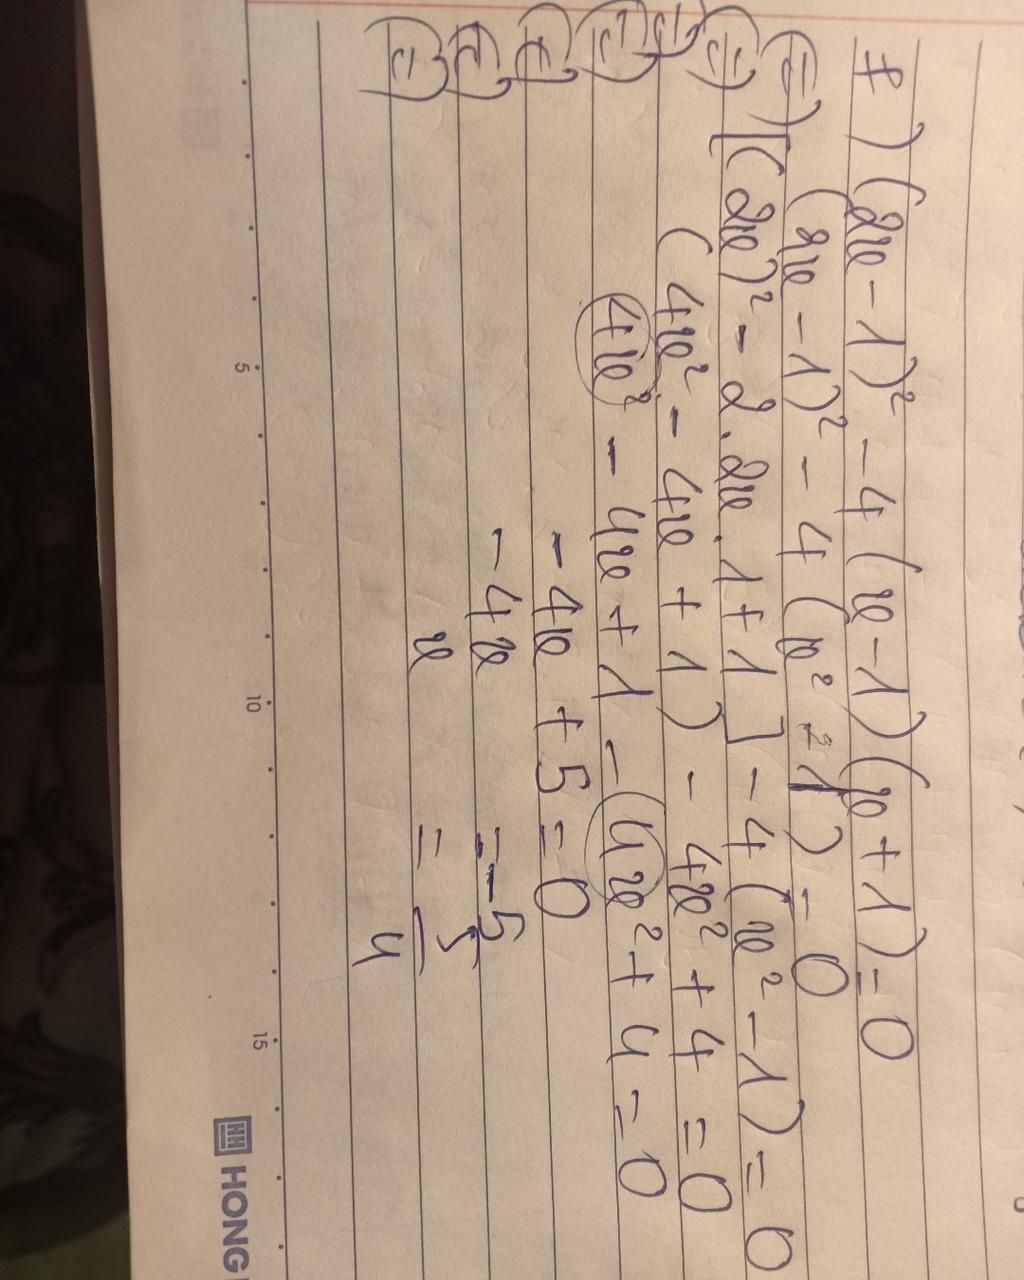 f) (2x - 1)² - 4 (x - 1) (x + 1) = 0
(=) (2x - 1)² - 4 (x² - 1) = 0
(=) [(2x)² - 2.2x.1+1] - 4 (x² - 1) = 0
(=) (4x² - 4x + 1) - 4x² + 4 = 0
(=) 4x² - 4x + 1 - 4x² + 4 = 0
(=) - 4x + 5 = 0
(=) - 4x = - 5
(=) x = 5/4
5 10 15
HH HONG